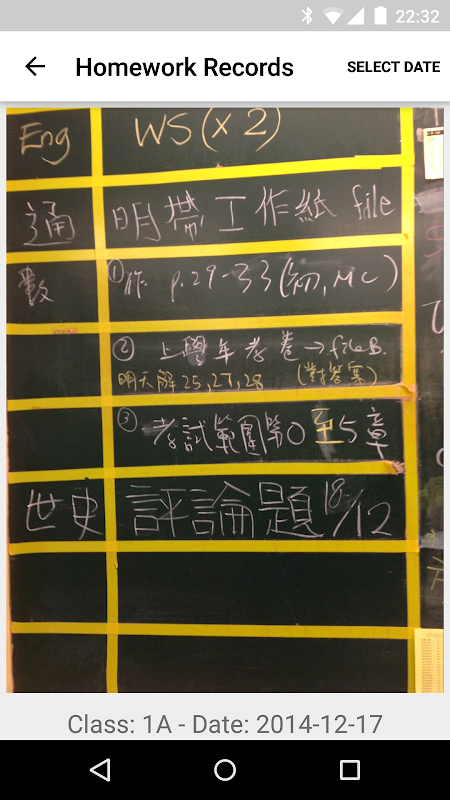 22:32
Homework Records
SELECT DATE
Eng WS (x 2)
通 明帶工作紙 file
數 ①作 p.29-33 (初, MC)
② 上學年考卷→file B.
明天解 25, 27, 28 (對答案)
③ 考試範圍第0至5章
世史 評論題 18/12
Class: 1A - Date: 2014-12-17